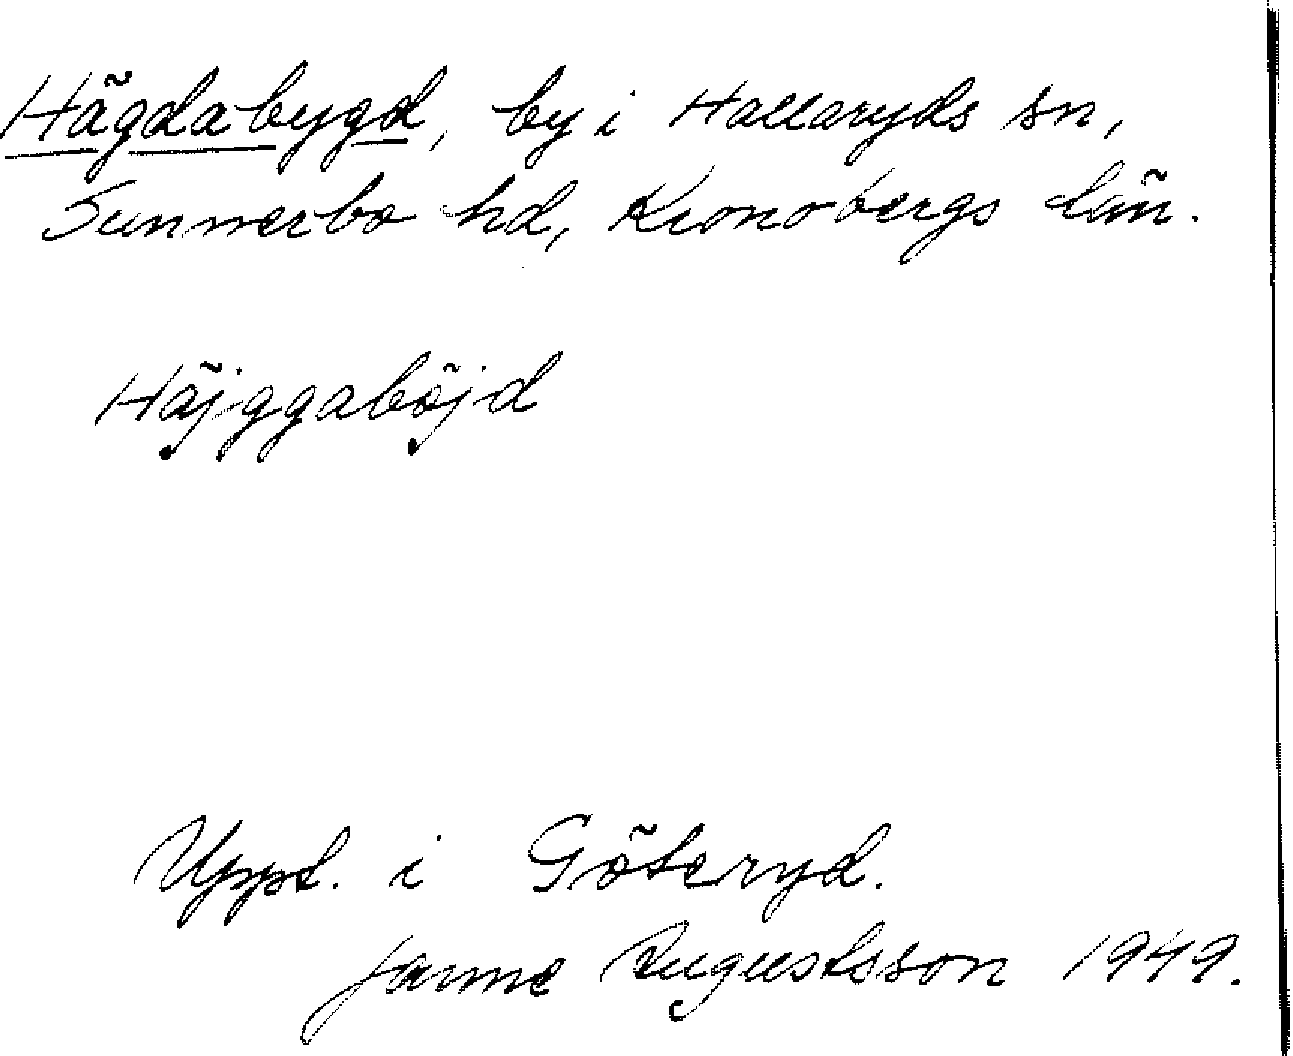 Hägdabygd, by i Hallaryds sn,
Sunnerbo hd, Kronobergs län.
Häjggaböjd
Uppt. i Göteryd.
Janne Augustsson 1949.